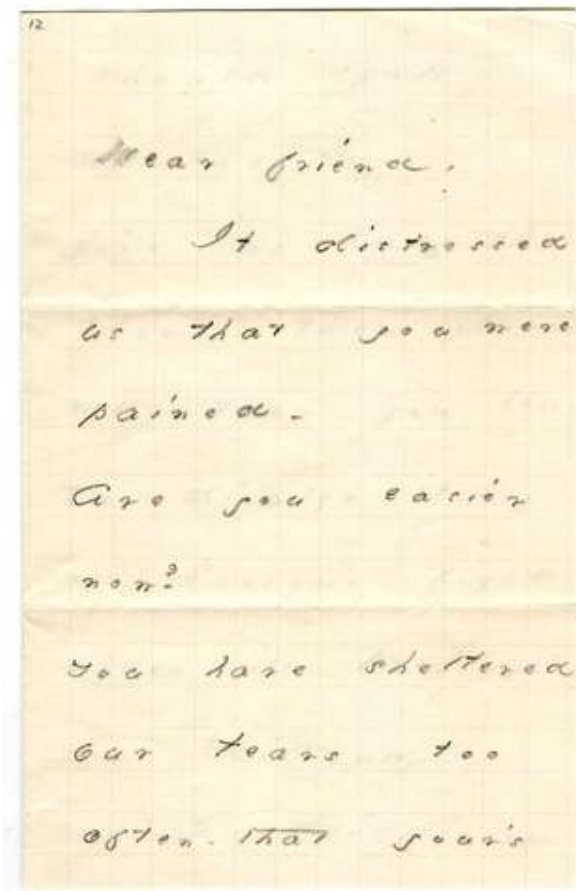 12
Dear friend.
It distressed
us that you were
pained -
Are you easier
now?
You have sheltered
our tears too
often - that your's